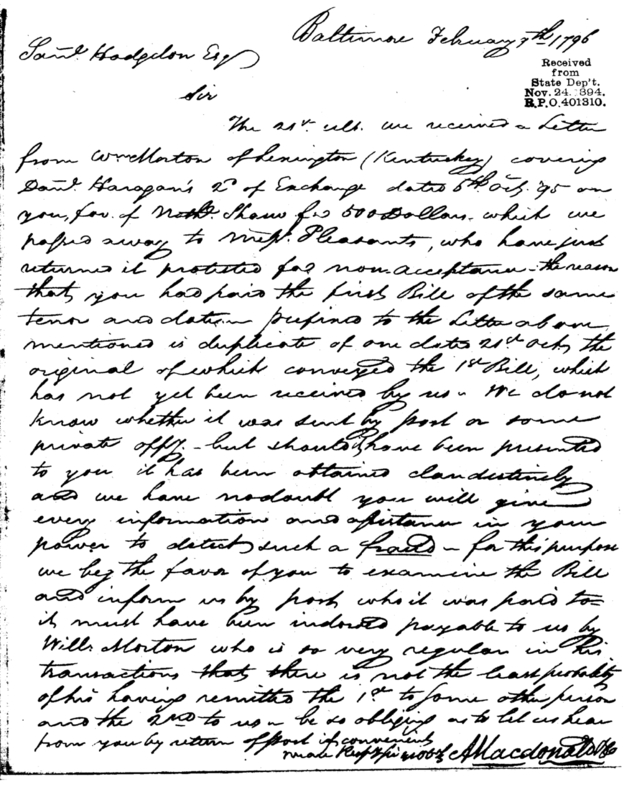 Baltimore February 7th 1796
Saml. Hodgdon Esqr
Received
from
State Dep't.
Nov. 24. 1894.
R.P.O. 401310.
Sir
The 21st. ult. we received a Letter
from Wm Morton of Lexington (Kentucky) covering
Danl. Haragan's 2d of Exchange dated 5th Octr. '95 on
you, fav. of Shaw for 500 Dollars. which we
passed away to Messrs. Pleasants, who have just
returned it protested for non-acceptance - the reason
that you had paid the first Bill of the same
tenor and date prefixed to the Letter above
mentioned is duplicate of one dated 21st Octr, the
original of which conveyed the 1st Bill, which
has not yet been received by us - We do not
know whether it was sent by post or some
private oppy. - but should it have been presented
to you it has been obtained clandestinely
and we have no doubt you will give
every information and assistance in your
power to detect such a fraud - for this purpose
we beg the favor of you to examine the Bill
and inform us by post who it was paid to =
it must have been indorsed payable to us by
Willm Morton who is so very regular in his
transactions that there is not the least probability
of his having remitted the 1st to some other person
and the 2nd to us - be so obliging as to let us hear
from you by return of post if convenient
we are Resp. A Macdonald & Co